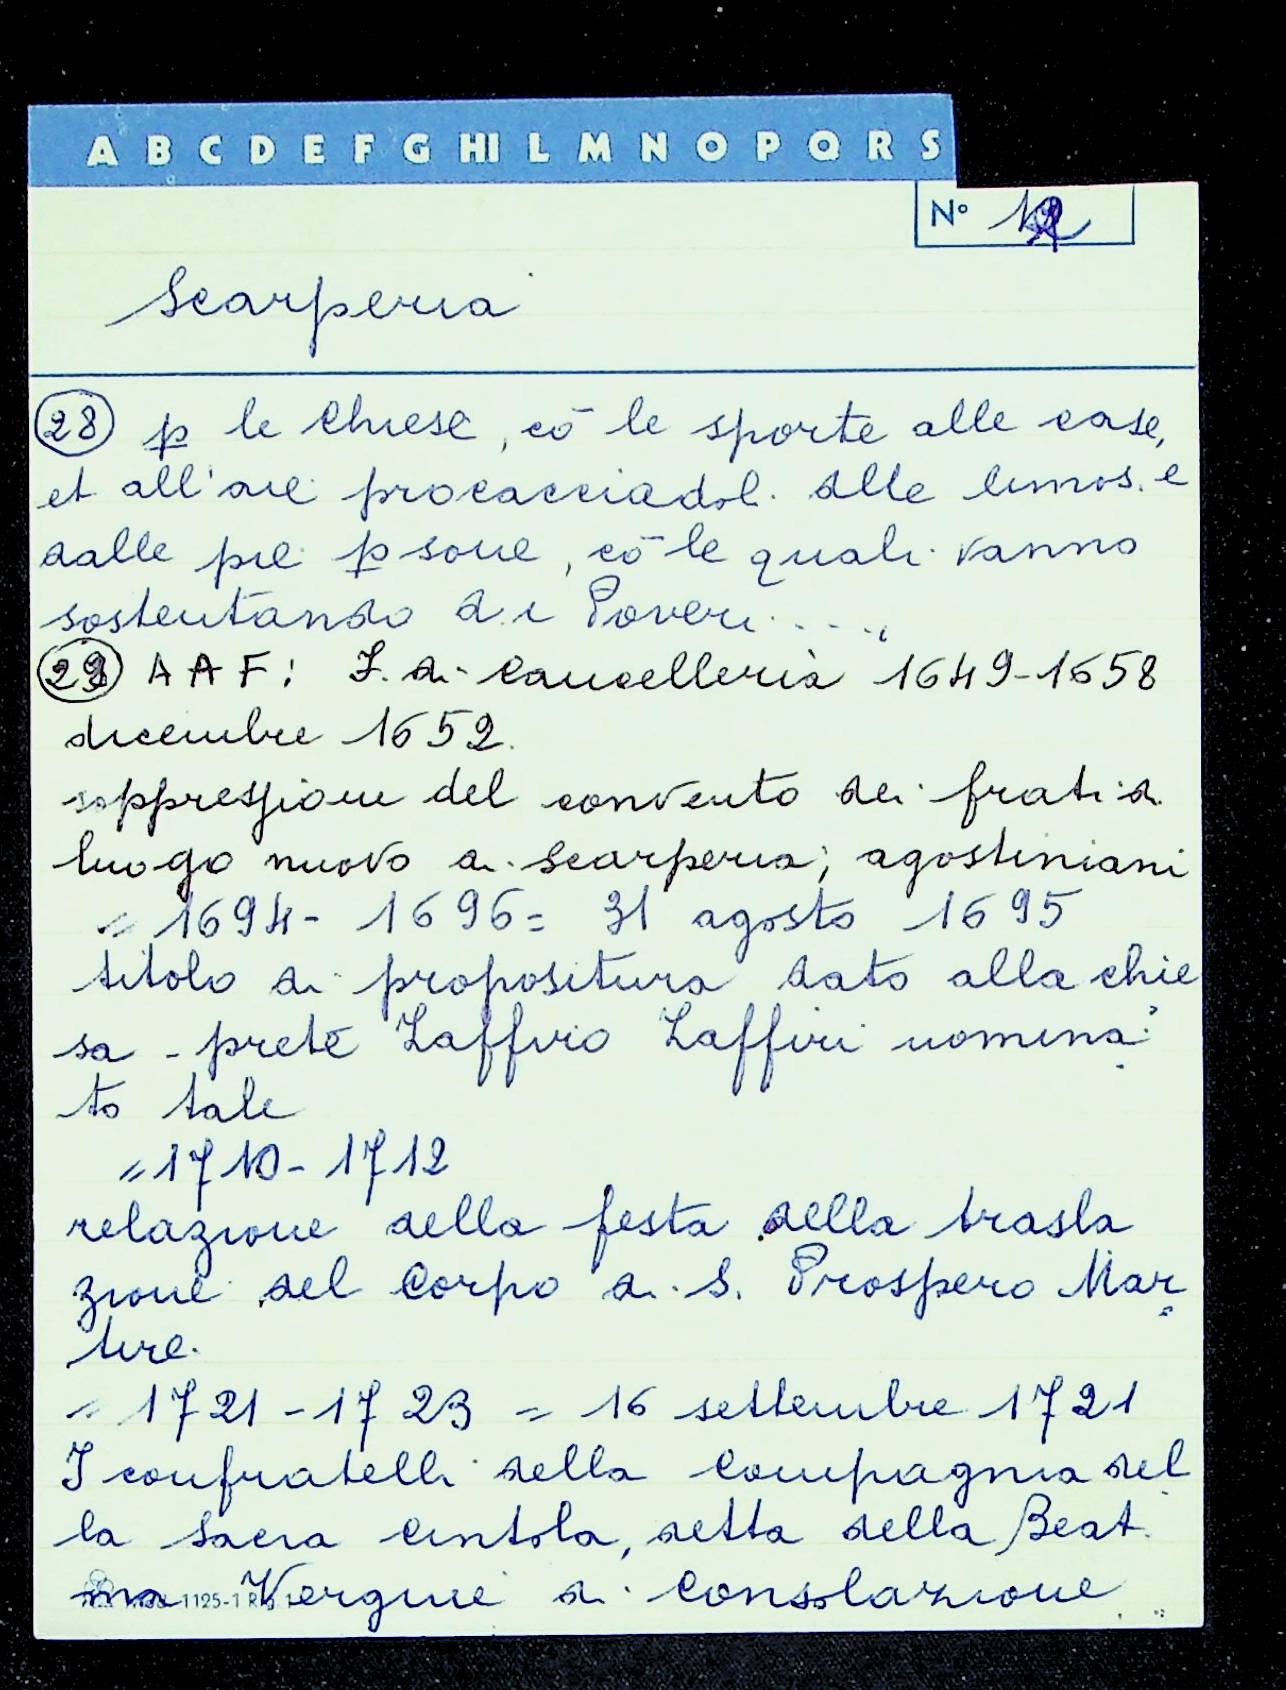 A B C D E F G HI L M N O P Q R S
N° 12
Scarperia
28 p le Chiese, cō le sporte alle case,
et all'are procacciadol. dlle limos. e
dalle pie psone, cō le quali vanno
sostentando d.i Poveri....
29 A A F: F. di Cancelleria 1649-1658
dicembre 1652.
soppressione del convento dei frati di
luogo nuovo di Scarperia; agostiniani
= 1694- 1696= 31 agosto 1695
titolo di propositura dato alla chie
sa - prete Zaffiro Zaffiri nomina
to tale
=1710-1712
relazione della festa della trasla
zione del Corpo di S. Prospero Mar
tire.
= 1721-1723 = 16 settembre 1721
I confratelli della Compagnia del
la Sacra Cintola, detta della Beat.
ma Vergine di Consolazione
1125-1